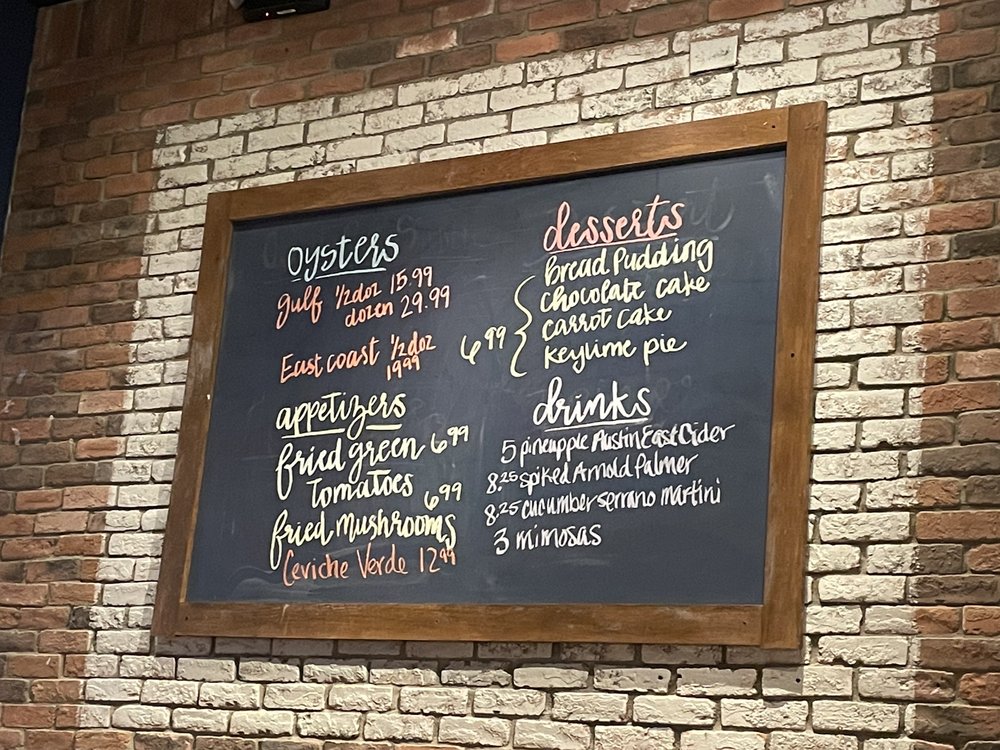 oysters
gulf 1/2 doz 15.99
dozen 29.99
East coast 1/2 doz
19.99
appetizers
fried green 6.99
Tomatoes
fried mushrooms 6.99
Ceviche Verde 12.99
desserts
Bread Pudding
chocolate cake
6.99
carrot cake
keylime pie
drinks
5 pineapple Austin East Cider
8.25 spiked Arnold Palmer
8.25 cucumber serrano martini
3 mimosas